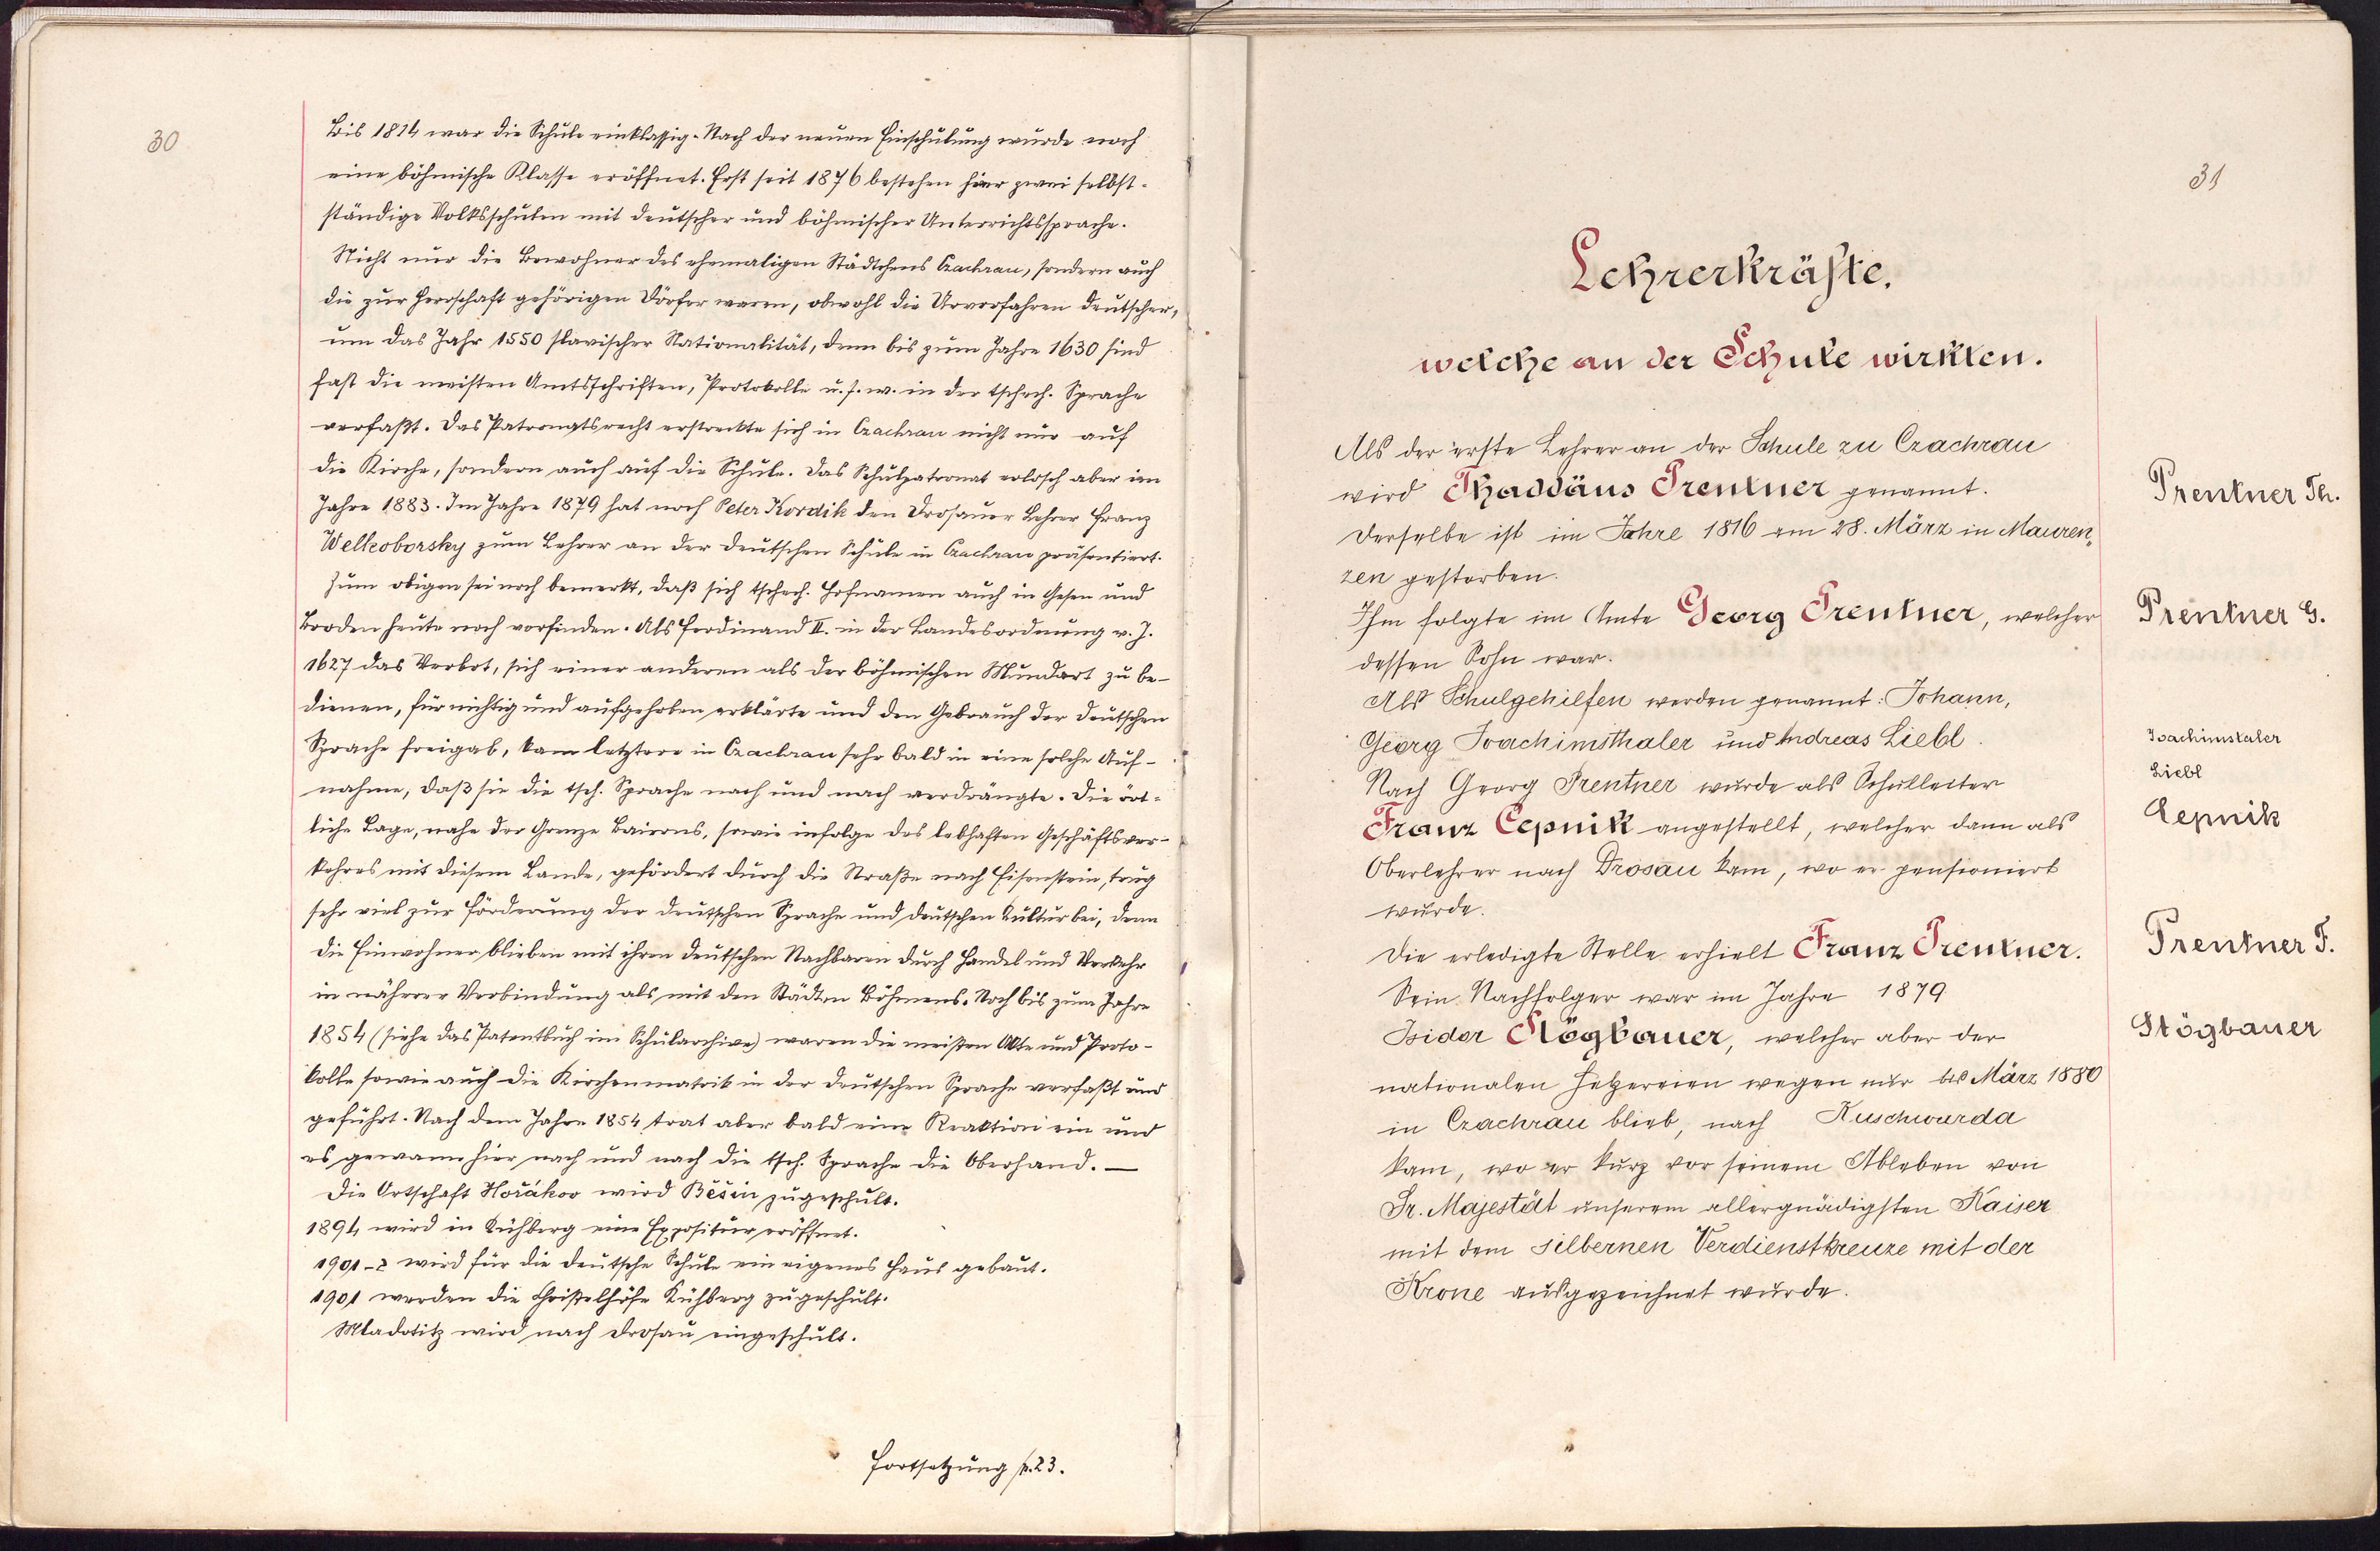 30
Bis 1874 war die Schule einklassig. Nach der neuen Einschulung wurde noch
eine böhmische Klasse eröffnet. Erst seit 1876 bestehen hier zwei selbst-
ständige Volksschulen mit deutscher und böhmischer Unterrichtssprache.
Nicht nur die Bewohner des ehemaligen Städtchens Czachrau, sondern auch
die zur Herrschaft gehörigen Dörfer waren, obwohl die Urvorfahren deutscher,
um das Jahr 1550 slavischer Nationalität, denn bis zum Jahre 1630 sind
fast die meisten Amtsschriften, Protokolle u. s. w. in der tschech. Sprache
verfaßt. Das Patronatsrecht erstreckte sich in Czachrau nicht nur auf
die Kirche, sondern auch auf die Schule. Das Schulpatronat erlosch aber im
Jahre 1883. Im Jahre 1879 hat noch Peter Kordik den Drosauer Lehrer Franz
Welkoborsky zum Lehrer an der deutschen Schule in Czachrau präsentiert.
Zum obigen sei noch bemerkt, daß sich tschech. Hofnamen auch in Gesen und
Broden heute noch vorfinden. Als Ferdinand II. in der Landesordnung v. J.
1627 das Verbot, sich einer anderen als der böhmischen Mundart zu be-
dienen, für nichtig und aufgehoben erklärte und den Gebrauch der deutschen
Sprache freigab, kam letztere in Czachrau sehr bald in eine solche Auf-
nahme, daß sie die tsch. Sprache nach und nach verdrängte. Die ört-
liche Lage, nahe der Grenze Baierns, sowie infolge des lebhaften Geschäftsver-
kehres mit diesem Lande, gefördert durch die Straße nach Eisenstein, trug
sehr viel zur Förderung der deutschen Sprache und deutschen Kultur bei, denn
die Einwohner blieben mit ihren deutschen Nachbaren durch Handel und Verkehr
in näherer Verbindung als mit den Städten Böhmens. Noch bis zum Jahre
1854 (siehe das Patentbuch im Schularchive) waren die meisten Akte und Proto-
kolle sowie auch die Kirchenmatrik in der deutschen Sprache verfaßt und
geführt. Nach dem Jahre 1854 trat aber bald eine Reaktion ein und
es gewann hier nach und nach die tsch. Sprache die Oberhand. —
Die Ortschaft Hořákov wird Běšin zugeschult.
1894 wird in Kühberg eine Expositur eröffnet.
1901-2 wird für die deutsche Schule ein eigenes Haus gebaut.
1901 werden die Christelhöfe Kühberg zugeschult.
Mladotitz wird nach Drosau eingeschult.
Fortsetzung p. 23.
31
Lehrerkräfte,
welche an der Schule wirkten.
Als der erste Lehrer an der Schule zu Czachrau
wird Thaddäus Prentner genannt.
Prentner Th.
Derselbe ist im Jahre 1816 am 28. März in Mauren„
zen gestorben.
Ihm folgte im Amte Georg Prentner, welcher
Prentner G.
dessen Sohn war.
Als Schulgehilfen werden genannt: Johann,
Georg Joachimsthaler und Andreas Liebl.
Joachimstaler
Liebl
Nach Georg Prentner wurde als Schulleiter
Franz Cepnik angestellt, welcher dann als
Cepnik
Oberlehrer nach Drosau kam, wo er pensioniert
wurde.
Die erledigte Stelle erhielt Franz Prentner.
Prentner F.
Sein Nachfolger war im Jahre 1879
Isidor Stögbauer, welcher aber der
Stögbauer
nationalen Hetzereien wegen nur bis März 1880
in Czachrau blieb, nach Kuschwarda
kam, wo er kurz vor seinem Ableben von
Sr. Majestät unserem allergnädigsten Kaiser
mit dem silbernen Verdienstkreuze mit der
Krone ausgezeichnet wurde.